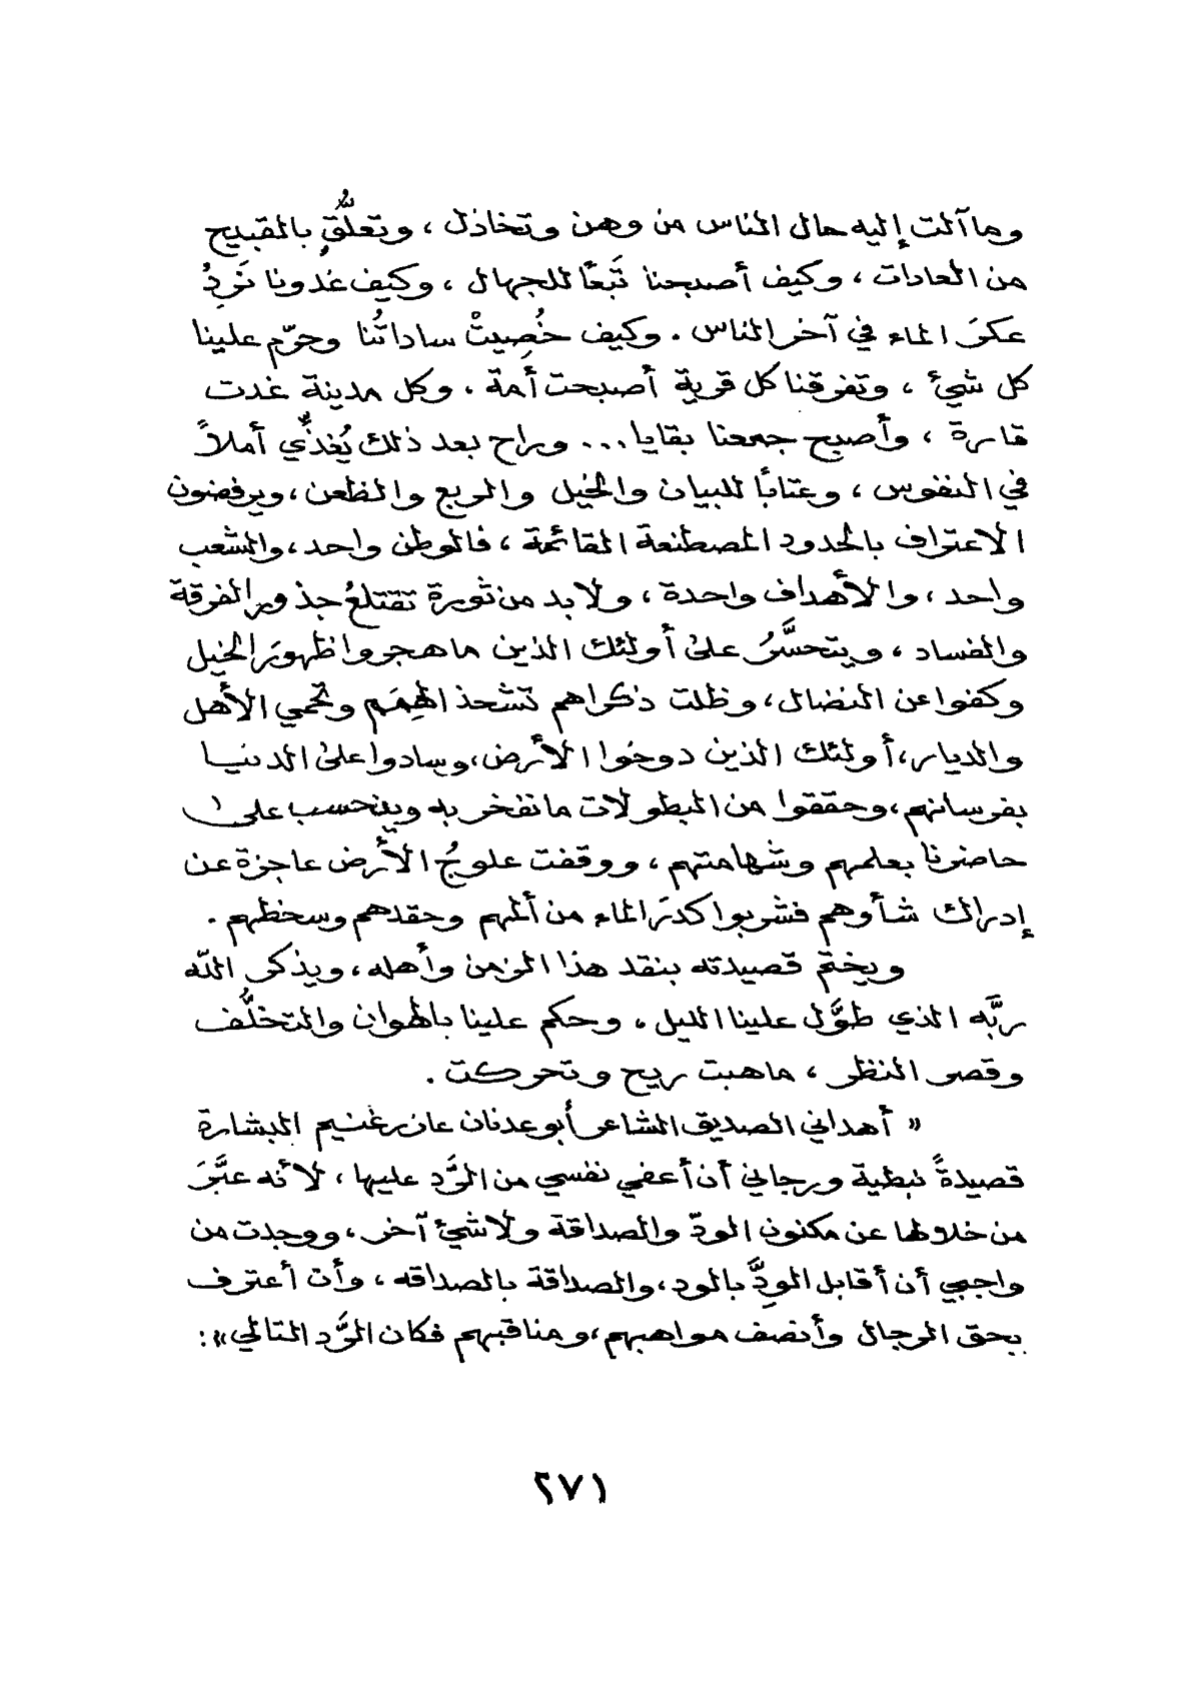 وما آلت إليه حال الناس من وهن وتخاذل ، وتعلُّقٍ بالقبيح
من العادات ، وكيف أصبحنا تَبَعًا للجهال ، وكيف غدونا نَرِدُ
عكرَ الماء في آخر الناس . وكيف خُصِيتْ ساداتُنا وحرّم علينا
كل شيئ ، وتفرقنا كل قرية أصبحت أمة ، وكل مدينة غدت
قارة ، وأصبح جمعنا بقايا ... وراح بعد ذلك يُغذّي أملاً
في النفوس ، وعتابًا للبيان والخيل والربع والظعن ، ويرفضون
الاعتراف بالحدود المصطنعة القائمة ، فالوطن واحد ، والشعب
واحد ، والأهداف واحدة ، ولا بد من ثورة تقتلعُ جذور الفرقة
والفساد ، ويتحسَّرُ على أولئك الذين ما هجروا ظهورَ الخيل
وكفوا عن النضال ، وظلت ذكراهم تشحذ الهِمَم وتحمي الأهل
والديار ، أولئك الذين دوخوا الأرض ، وسادوا على الدنيا
بفرسانهم ، وحققوا من البطولات ما نفخر به وينحسب على
حاضرنا بعلمهم وشهامتهم ، ووقفت علوجُ الأرض عاجزة عن
إدراك شأوهم فشربوا كدرَ الماء من ألمهم وحقدهم وسخطهم .
ويختم قصيدته بنقد هذا الزمن وأهله ، ويذكر اللّه
ربَّه الذي طوَّل علينا الليل ، وحكم علينا بالهوان والتخلُّف
وقصر النظر ، ما هبت ريح وتحركت .
« أهداني الصديق الشاعر أبو عدنان عازر غنيم البشارة
قصيدةً نبطية ورجاني أن أعفي نفسي من الرَّد عليها ، لأنه عبَّرَ
من خلالها عن مكنون الودّ والصداقة ولا شيئ آخر ، ووجدت من
واجبي أن أقابل الودَّ بالود ، والصداقة بالصداقه ، وأن أعترف
بحق الرجال وأنصف مواهبهم ، ومناقبهم فكان الرَّد التالي » :
٢٧١